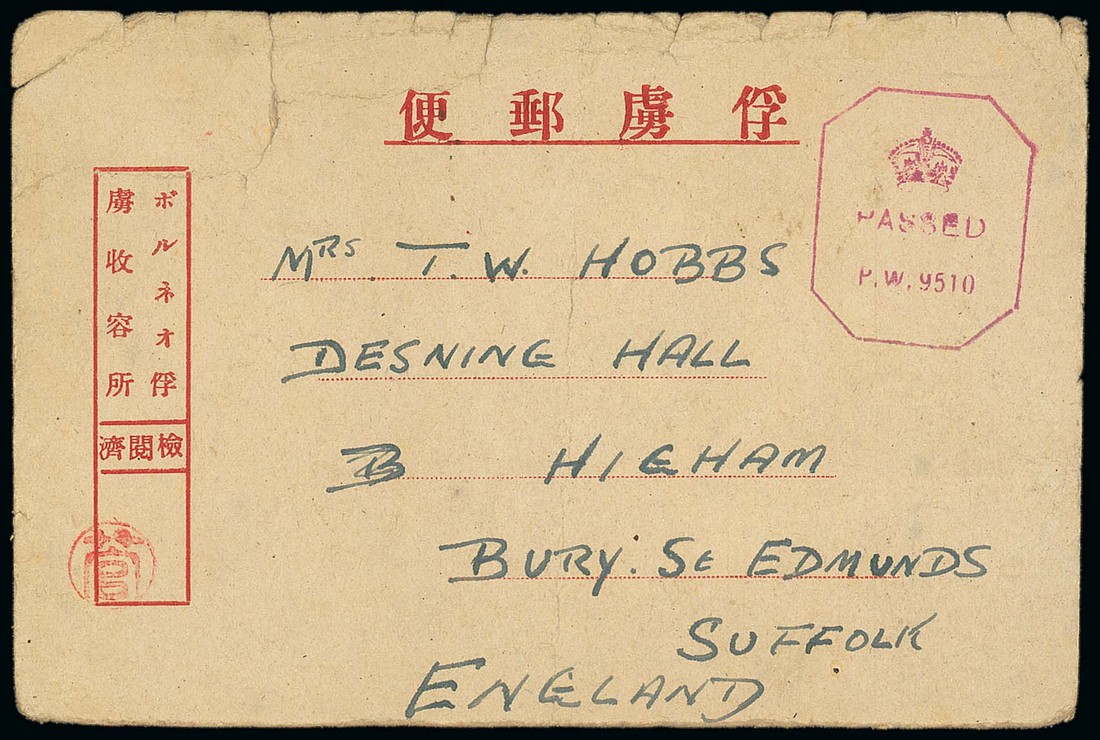 俘虜郵便
PASSED
P.W. 9510
ボルネオ俘
虜收容所
檢閱濟
菅
MRS. T. W. HOBBS
DESNING HALL
B HIGHAM
BURY. ST EDMUNDS
SUFFOLK
ENGLAND